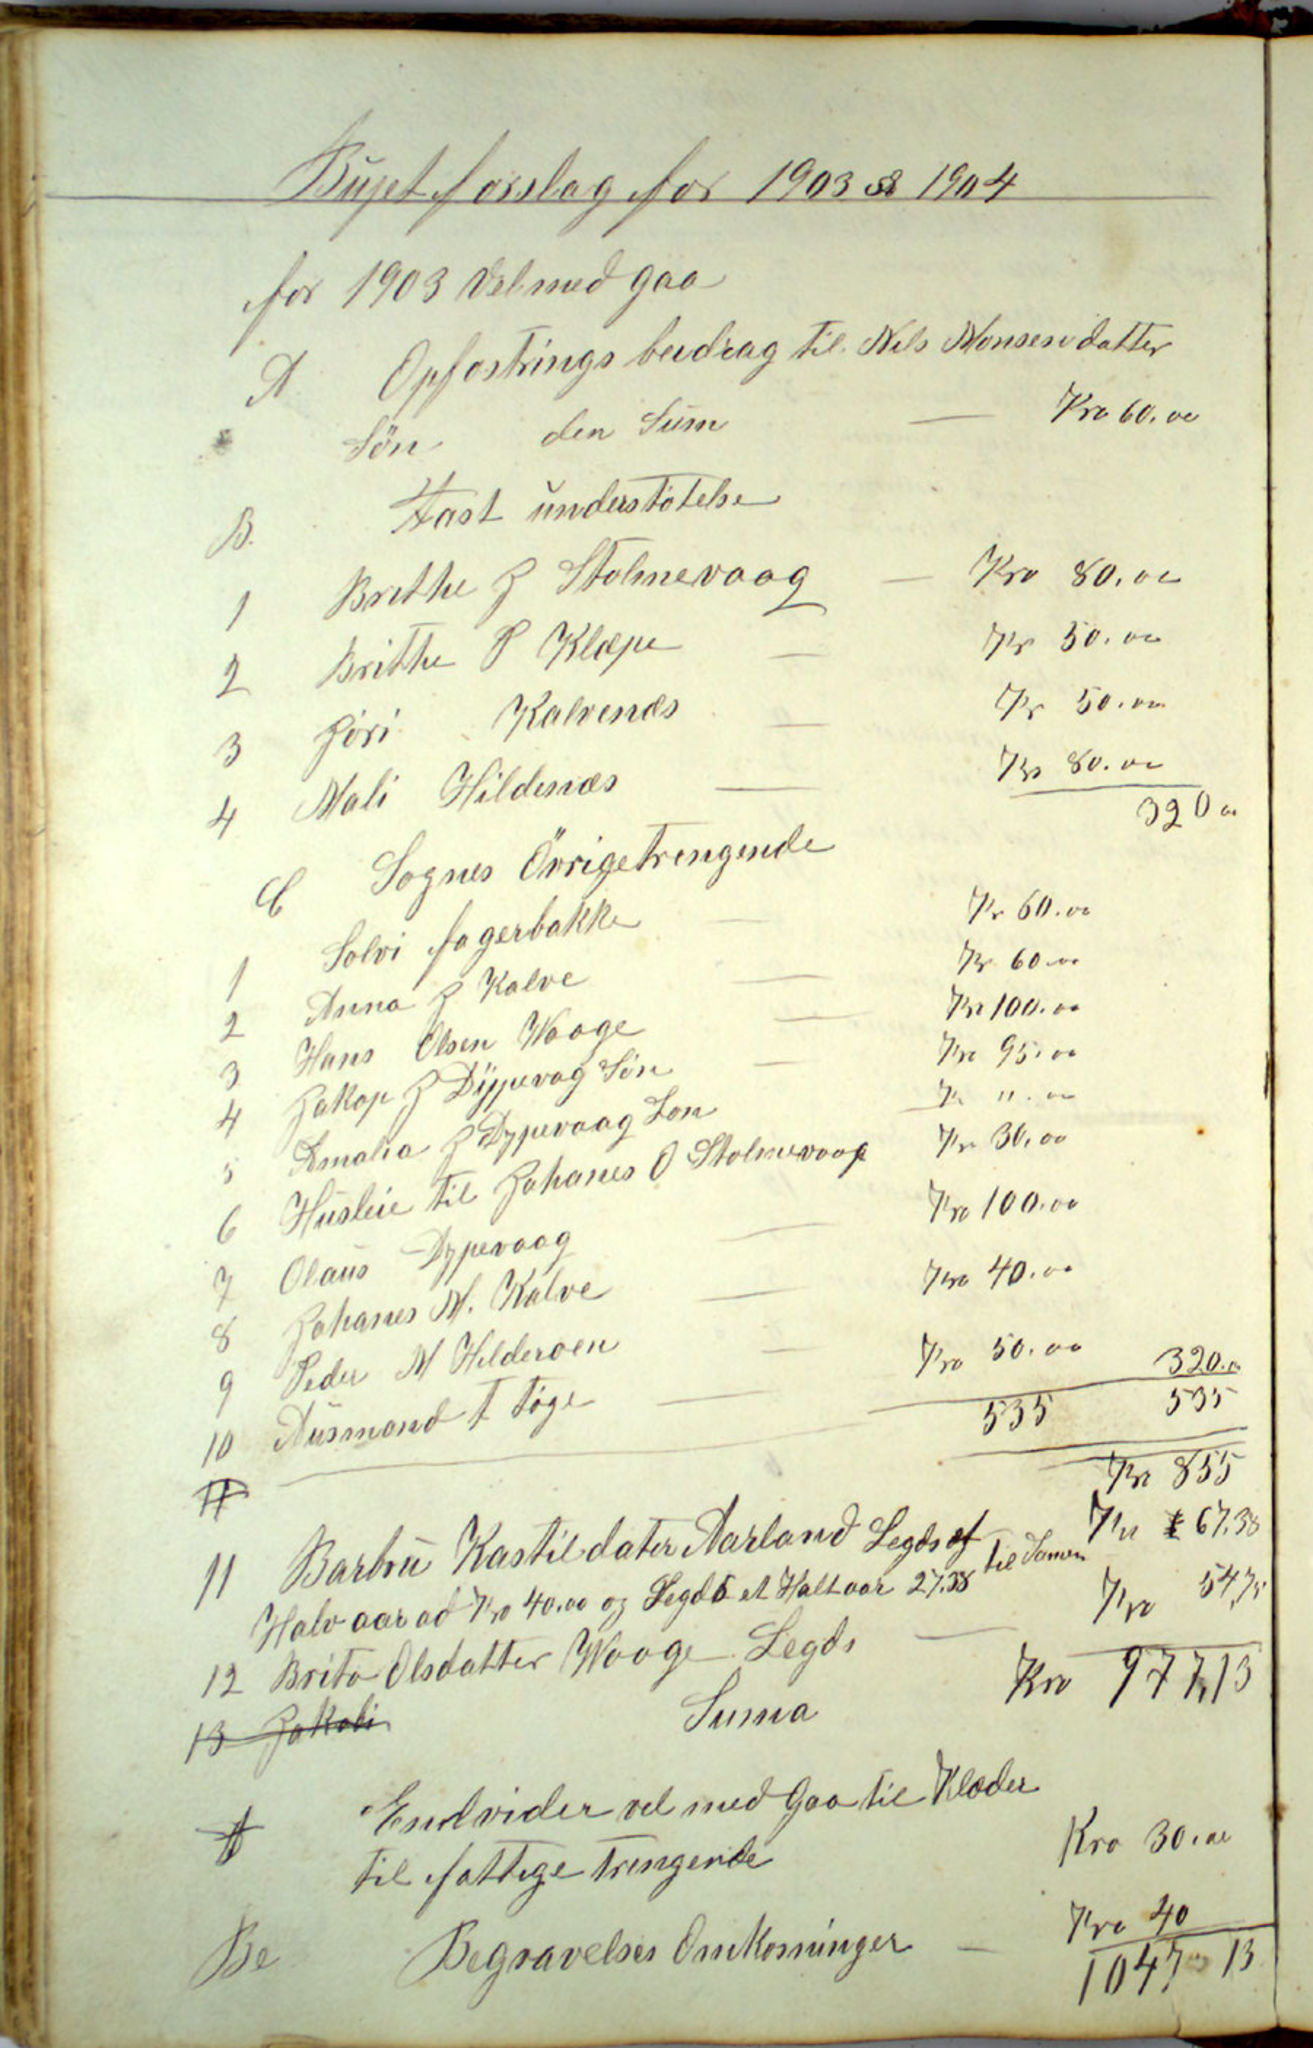 Bujet forslag for 1903 & 1904
for 1903 vel med gaa
A Opfostrings beidrag til Nils Monsesvdatter
Sön den Sum — Kro 60.00
B. Fast understötelse
1 Brithe J Stolmevaag — Kro 80.00
2 Brithe P Klæpe — Kr 50.00
3 Jöri Kalvenæs — Kr 50.00
4 Mali Hildenæs — Kr 80.00
320 00
C Sognes Övrigetrengende
1 Solvi fagerbakke — Kr 60.00
2 Anna J Kalve — Kr 60.00
3 Hans Olsen Waage — Kr 100.00
4 Jakop J Dÿpevag Sön — Kro 95.00
5 Amalia J Dypevaag Son Kr " . 00
6 Husleie til Johanes O Stolmevaag Kr 30.00
7 Olaus Dypevaag — Kro 100.00
8 Johanes M. Kalve — Kro 40.00
9 Peder M Hilderøen — Kro 50.00 320.00
10 Ausmond T Töge — 535 535
11 Kr 855
11 Barbru Kastildater Aarland Legds et til Samen Kr 67.38
Halv aar ad Kro 40.00 og Legds et Halt aar 27.38 Kro 54,75
12 Brita Olsdatter Waage Legds —
13 Jakobi Suma Kro 977,13
A Endvider vel med Gaa til Klæder
til fattige trengende Kro 30.00
Be Begravelses Omkosninger — Kro 40
1047 13